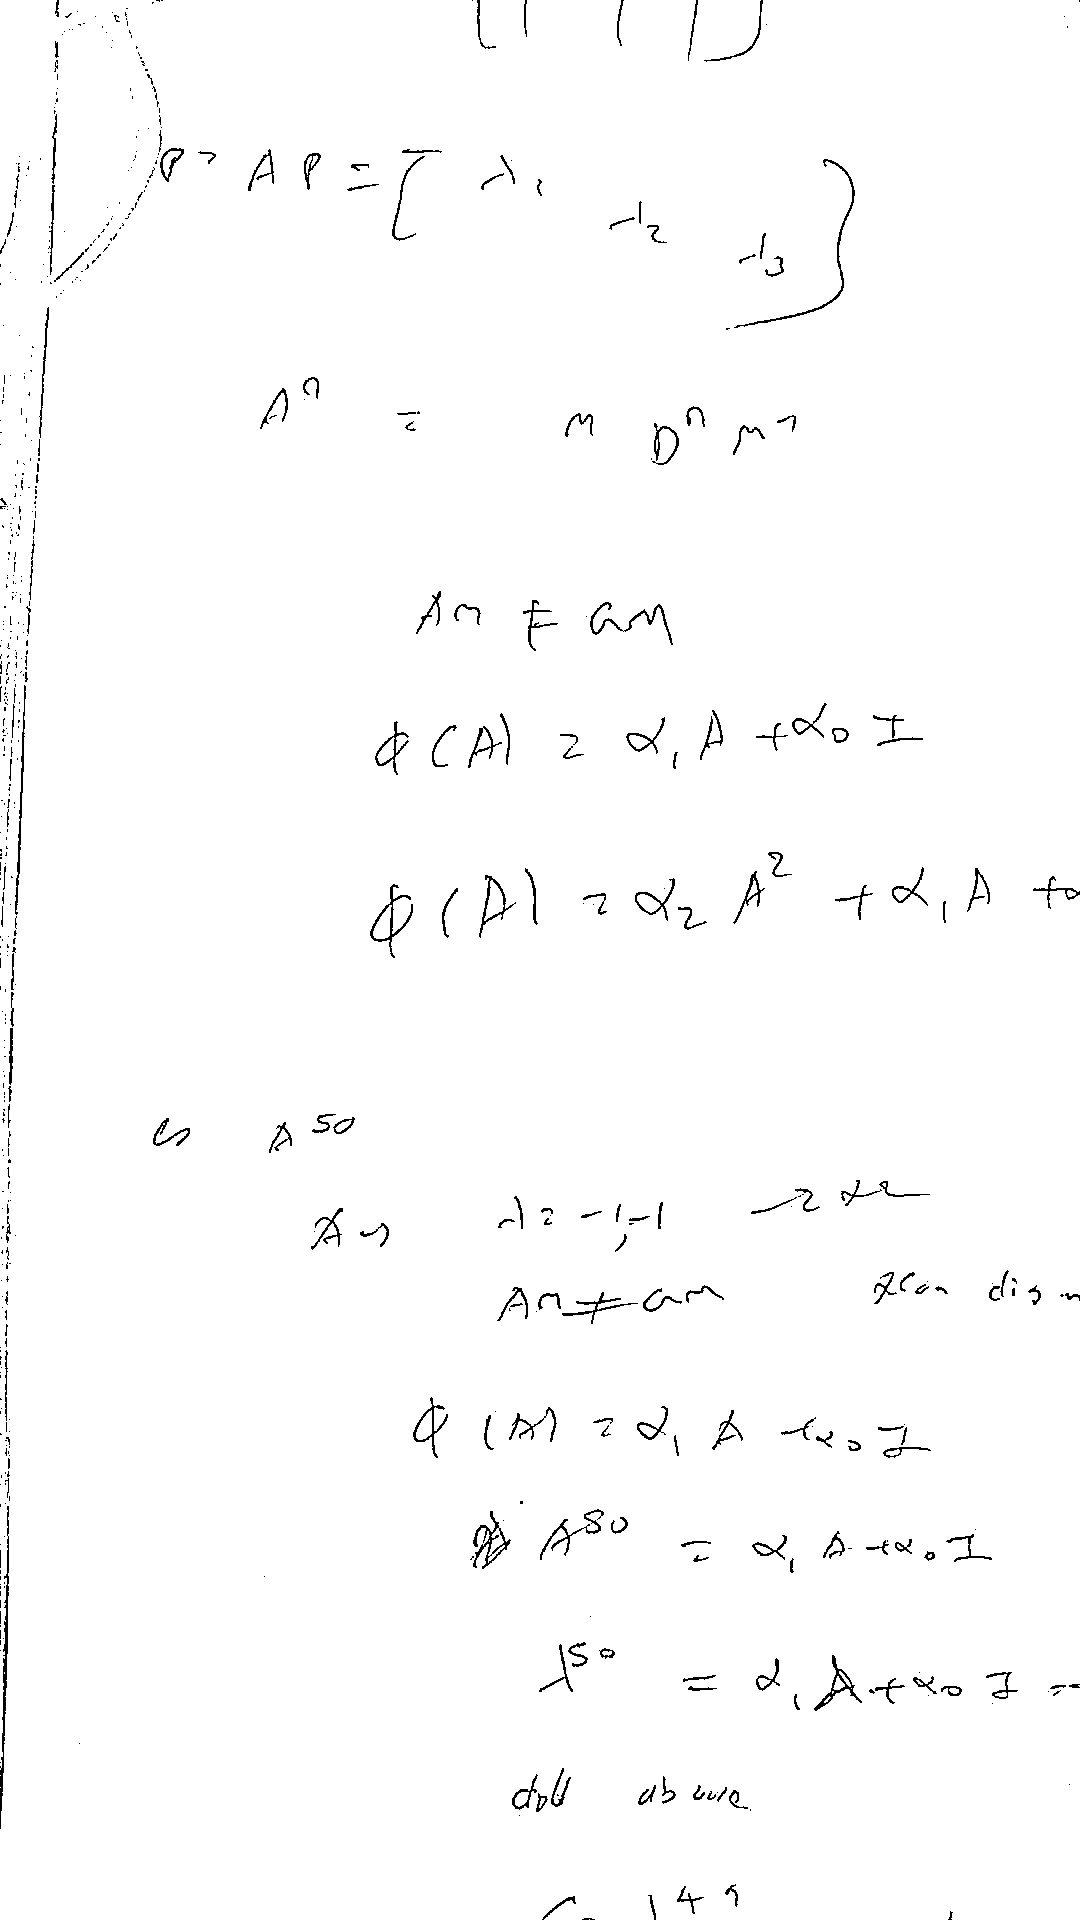 AP = [ λ₁
λ₂
λ₃ ]
Aⁿ = M Dⁿ M⁻¹
AM ≠ GM
φ(A) = α₁A + α₀ I
φ(A) = α₂ A² + α₁ A +
A⁵⁰
λ = -1, -1
AM ≠ GM
φ(A) = α₁ A + α₀ I
A⁵⁰ = α₁ A + α₀ I
λ⁵⁰ = α₁ A + α₀ I
diff above
49